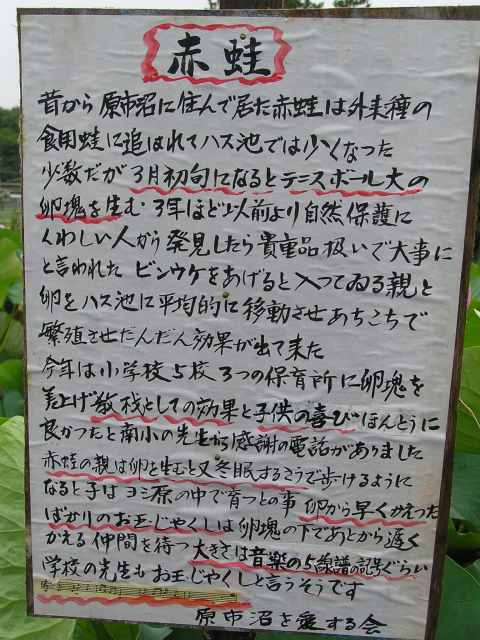 赤蛙
昔から原市沼に住んで居た赤蛙は外来種の
食用蛙に追はれてハス池では少くなった
少数だが3月初旬になるとテニスボール大の
卵塊を生む 3年ほど以前より自然保護に
くわしい人から発見したら貴重品扱いで大事に
と言われた ビンウケをあげると入ってゐる親と
卵をハス池に平均的に移動させあちこちで
繁殖させだんだん効果が出て来た
今年は小学校5校3つの保育所に卵塊を
差上げ教材としての効果と子供の喜びほんとうに
良かったと南小の先生から感謝の電話がありました
赤蛙の親は卵を生むと又冬眠するそうで歩けるように
なると子はヨシ原の中で育つとの事 卵から早くかえった
ばかりのお玉じゃくしは卵塊の下であとから遅く
かえる仲間を待つ大きさは音楽の5線譜の記号ぐらい
学校の先生もお玉じゃくしと言うそうです
原市沼を愛する会